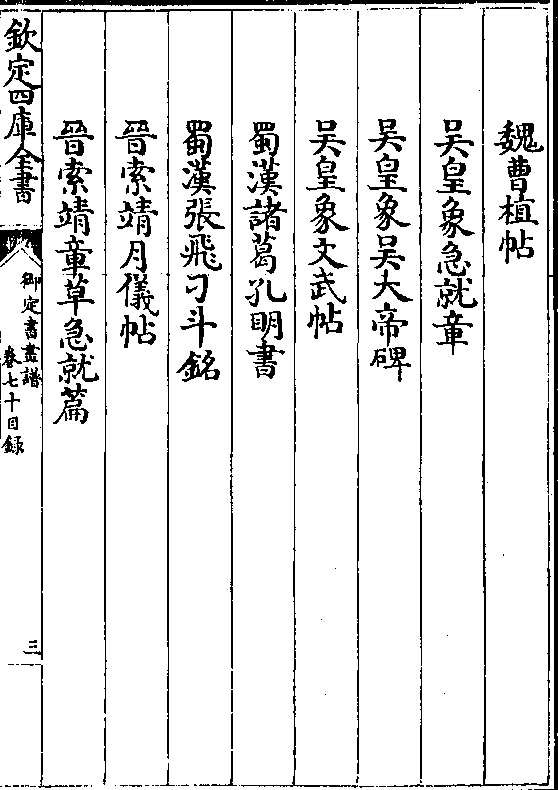 魏曹植帖
吴皇象急就章
吴皇象吴大帝碑
吴皇象文武帖
蜀漢諸葛孔明書
蜀漢張飛刁斗銘
晉索靖月儀帖
晉索靖章草急就篇
欽定四庫全書
御定書畫譜
卷七十目録
三